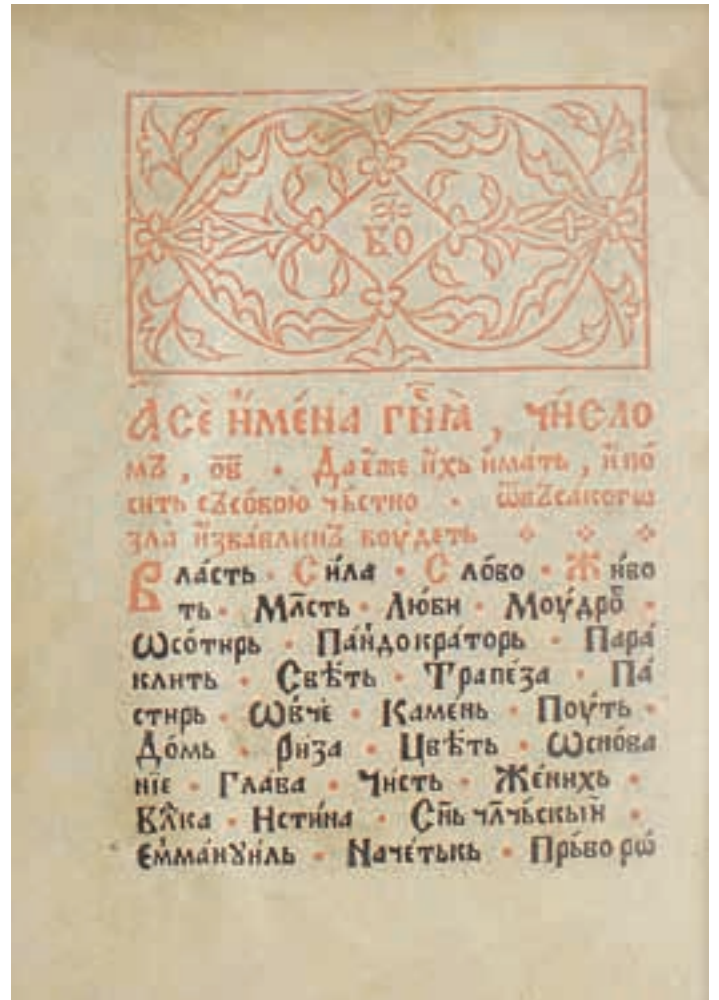 КО
А сѐ и҆ме́на гн҃ꙗ̀ , чи́сло
мъ , ѻ҃в · Да є҆́же и҆хь и҆ма́ть , и҆ но́
сить съсо́бою чьстно · ѿ въсакогѡ
зла̀ и҆зба́влннъ боу́деть
Вла́сть · Си́ла · Сло́во · Жи́во
ть · Мл҃сть · Лю́би · Моу́дрⷭ҇ ·
Ѡсо́тирь · Па́н̾докра́торь · Пара́
клить · Свѣ́ть · Трапе́за · Па́
стирь · Ѡ́вче · Ка́мень · Поу́ть ·
До́мь · Ри́за · Цвѣ́ть · Ѡсно́ва
нїе · Гла́ва · Чисть · Же́нихь ·
Влⷣка · Исти́на · Сн҃ь чл҃чьскыи҆ ·
Емма́нꙋиль · Наче́тькь · Прь́во рѡ́